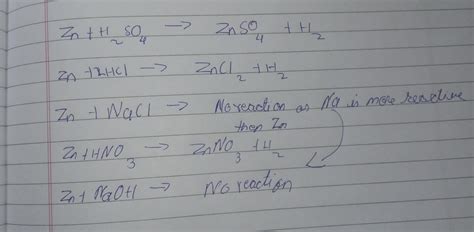 Zn + H2SO4 → ZnSO4 + H2
Zn + 2HCl → ZnCl2 + H2
Zn + NaCl → No reaction as Na is more reactive
than Zn
Zn + HNO3 → ZnNO3 + H2
Zn + NaOH → No reaction